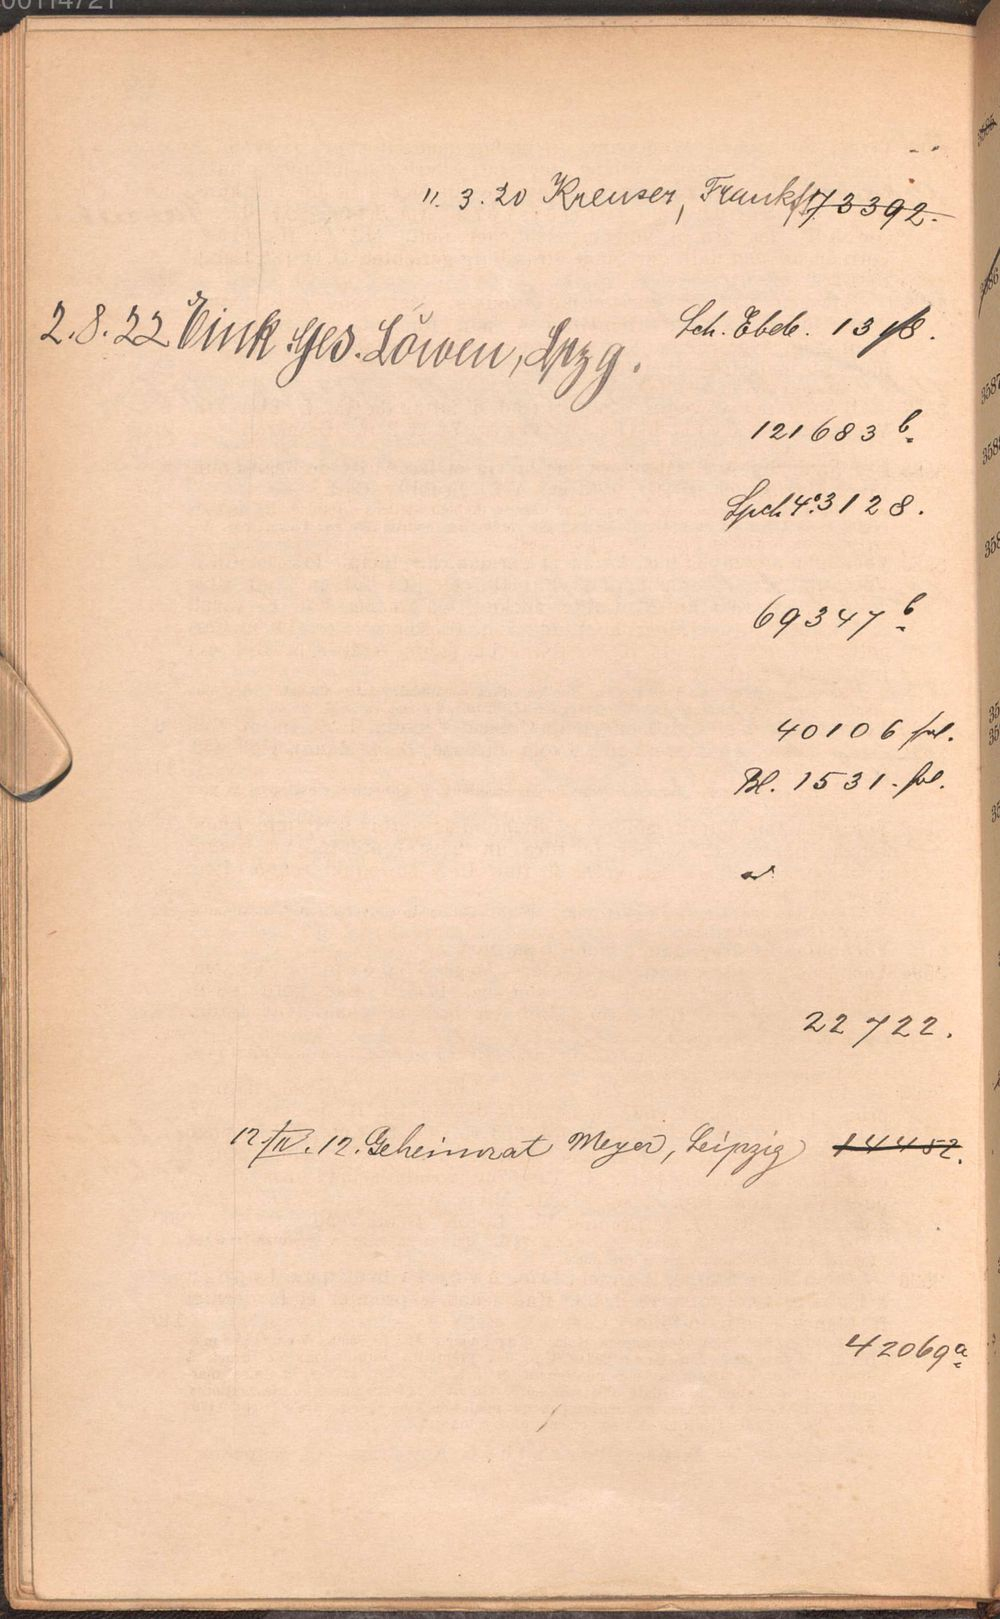 00114721
11. 3. 20 Kreuser, Frankf. 73392.
2. 8. 22 Eink. Ges. Löwen, Lpzg. Sch. Ebde. 1318.
121683 b
Spch 4° 3128.
69347 b
40106 fol.
Bl. 1531. fol.
22722.
12/IV. 12. Geheimrat Meyer, Leipzig 14452.
42069 a